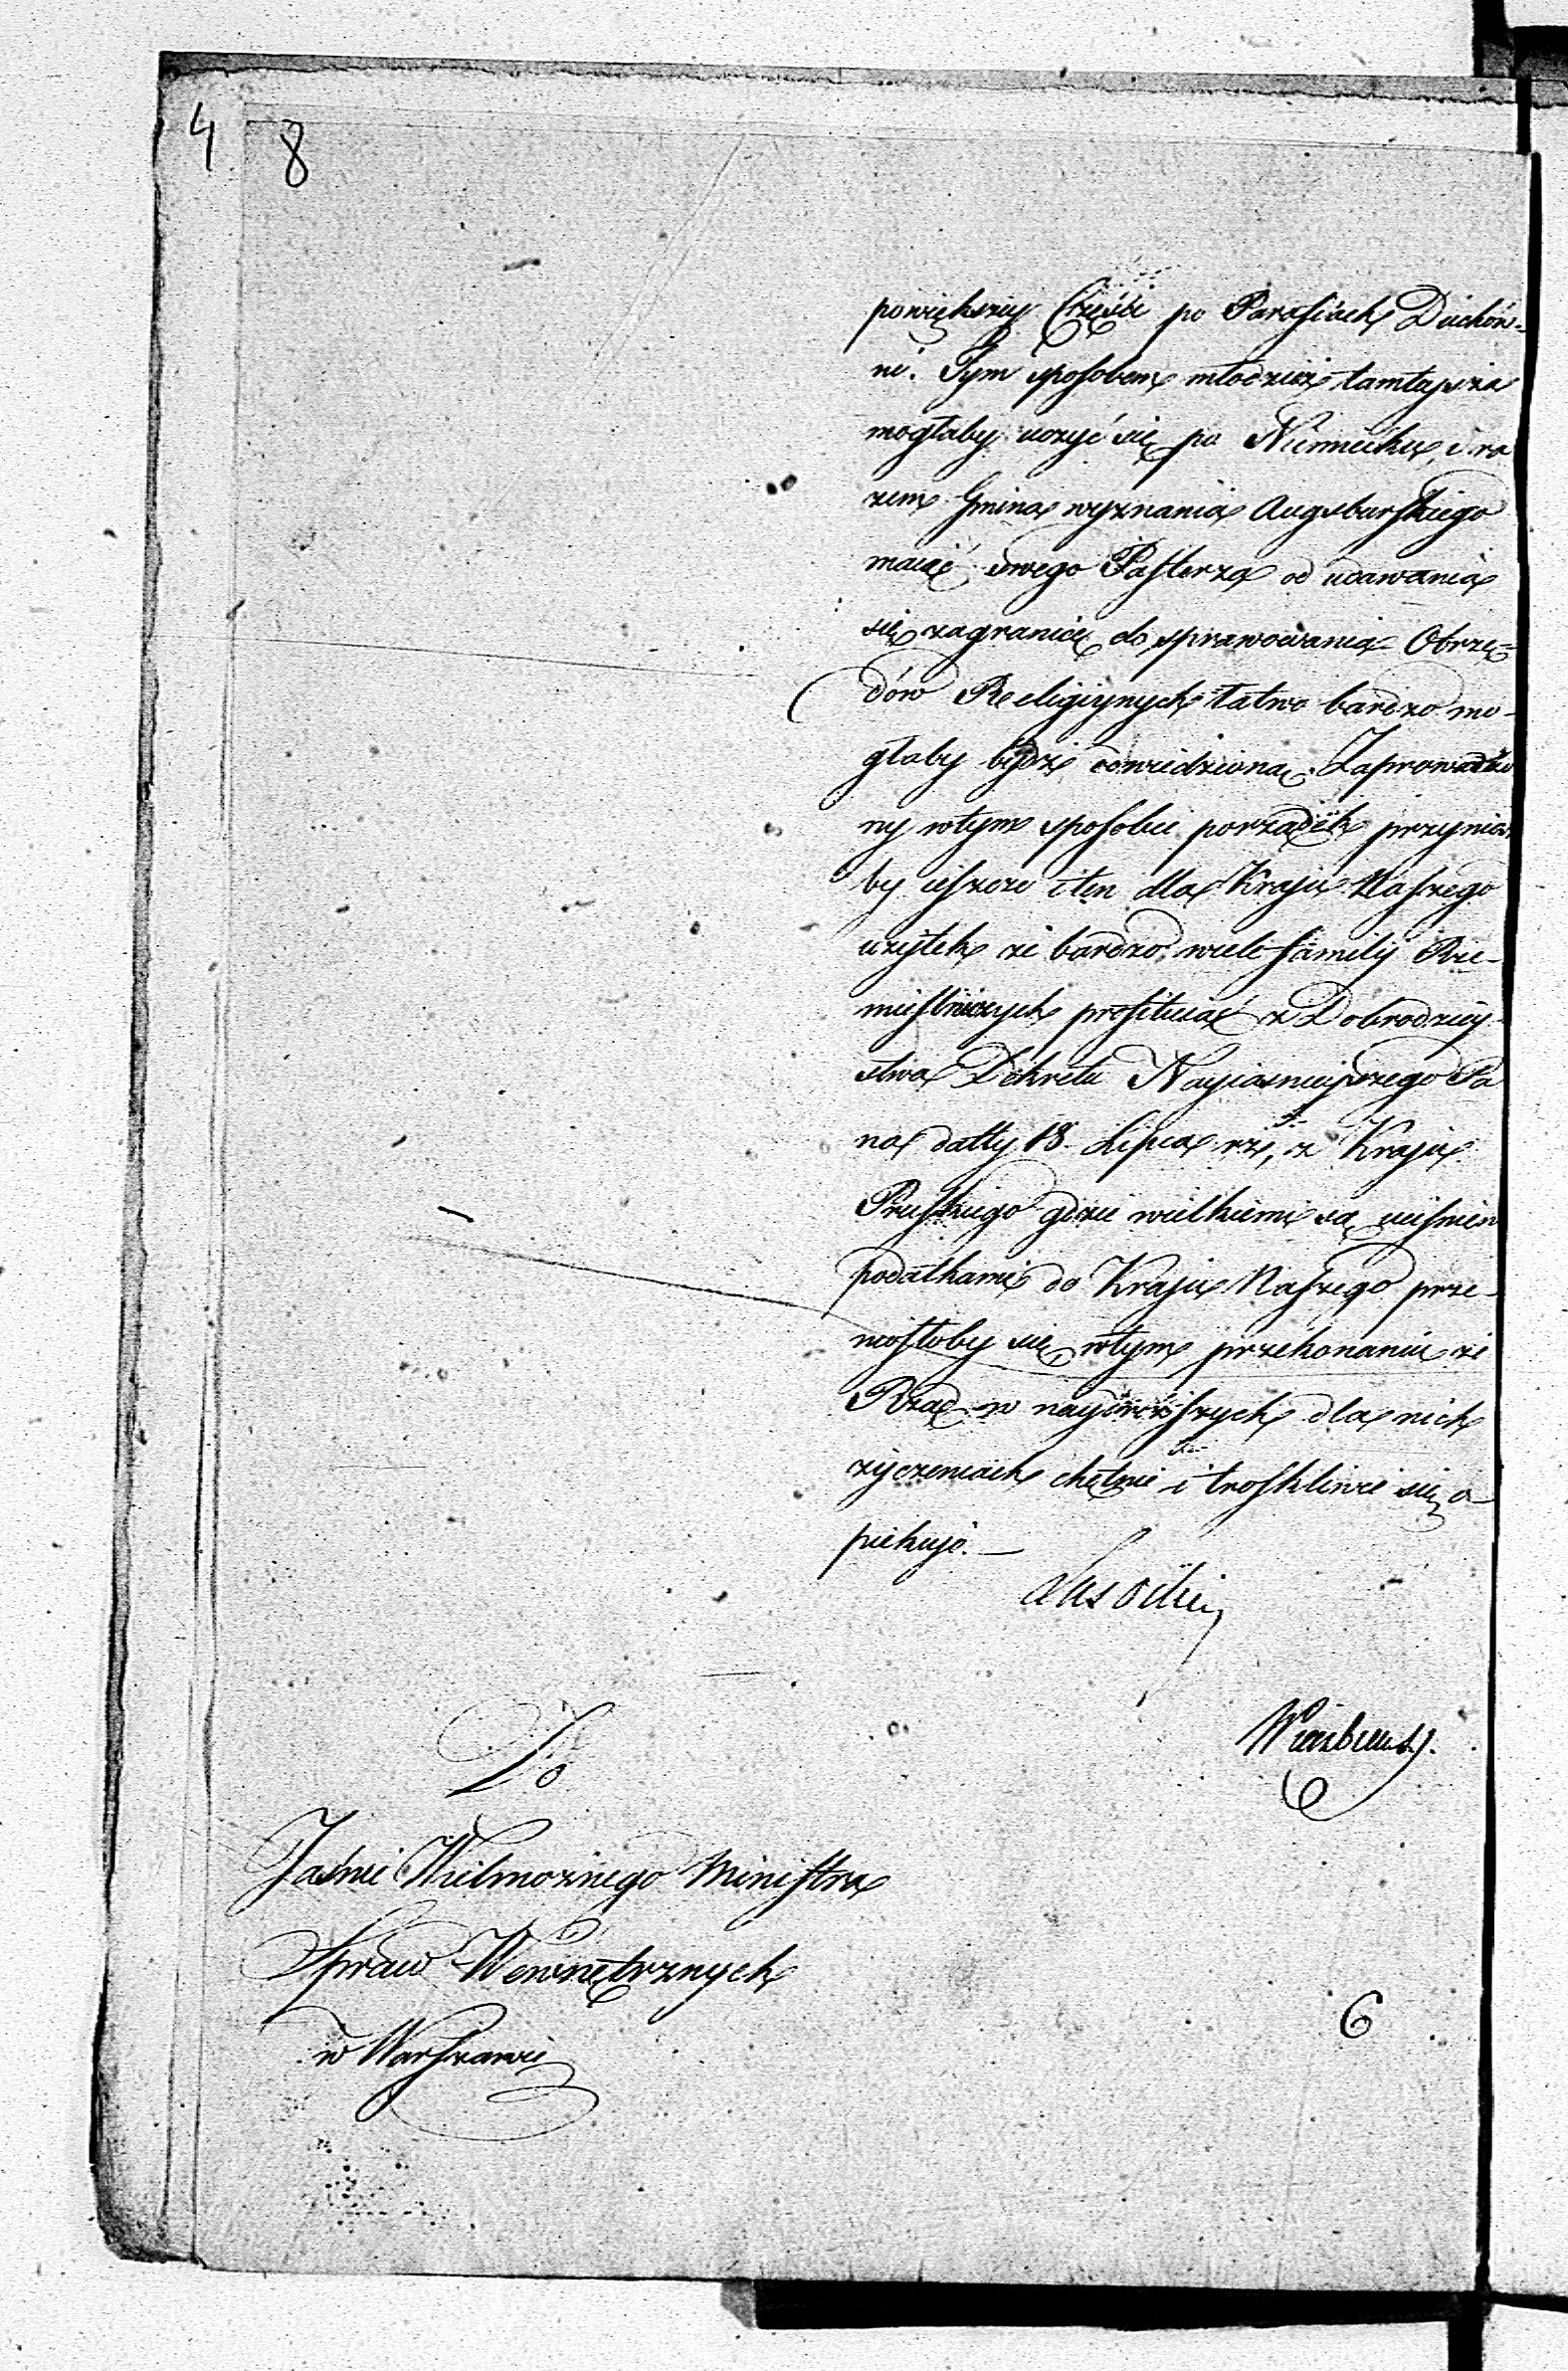 4 8
powiększey Części po Parafiach Duchow-
ni. Tym sposobem młodzież tamteysza
mogłaby uczyć się po Niemiecku, i ra
zem Gmina wyznania Augsburskiego
maiąc swego Pasterza od udawania
się zagranicę do sprawowania Obrzę-
dów Religiynych łatwo bardzo mo-
głaby bydź odwiedziona. Zaprowadzo
ny wtym sposobie porządek przyniosł
by ieszcze i ten dla Kraju Naszego
użytek że bardzo wiele familij Rze-
mieślniczych profituiąc z Dobrodziey-
stwa Dekretu Nayiasnieyszego Pa
na datty 18 Lipca rż, z Kraju
Pruskiego gdzie wielkiemi są uciśnien
podatkami do Kraju Naszego prze-
niosłoby się wtym przekonaniu że
Rząd w nayświętszych dla nich
życzeniach chętnie i troskliwie się o
piekuje.
Do
Jaśnie Wielmożnego Ministra
Spraw Wewnętrznych
w Warszawie
6